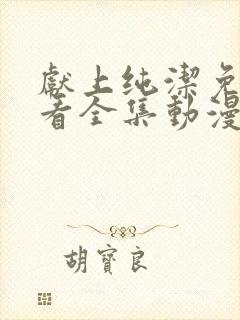 獻上纯潔免
看全集動漫
胡寶良